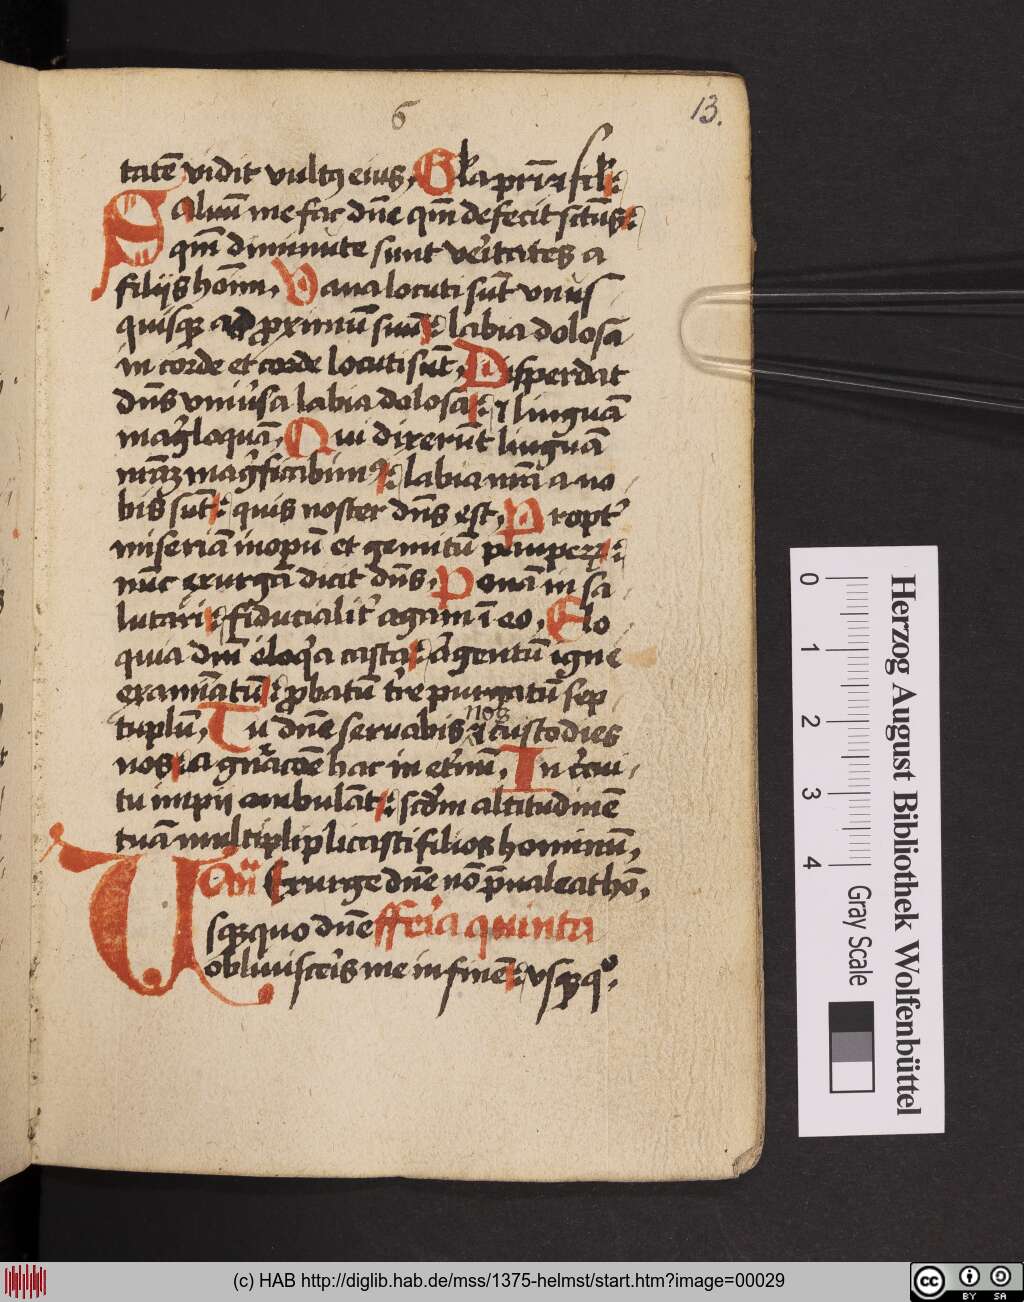 6
13.
tatē vidit vultꝫ eius, Gl̄a pr̄i ⁊ fil̄i :
Saluū me fac dn̄e qm̄ defecit sctūs :
qm̄ diminute sunt ver̄itates a
filijs homī, Vana locuti sūt vnus
quisqꝫ ad ꝓximū suū : labia dolosa
in corde et corde locuti sūt, Disperdat
dn̄s vniu̓sa labia dolosā : ⁊ linguā
mag̓loquā, Qui dixerūt linguā
nrāꝫ mag̓ficabimꝰ : labia nrā a no
bis sūt : quis noster dn̄s est, Propt̓
miseriā inopū et gemitū paupeꝝ :
nūc exurgā dicit dn̄s, Ponā in sa
lutari : fiducialit̓ agam ī eo, Elo
quia dn̄i eloq̓a casta : argentū igne
examīatū : ꝓbatū t̓re purgatū sep
tuplū, Tu dn̄e seruabis nos ⁊ custodies
nos : a gn̄acōe hac in et̓nū, In c̓cui
tu impij ambulāt : scd̓m altitudinē
tuā multipliplicasti filios hominū,
Añ Exurge dn̄e nō p̄ualeat hō,
Vsqꝫquo dn̄e fferia quinta
obliuisceris me in finē : vsqꝫqͦ,
0 1 2 3 4
Herzog August Bibliothek Wolfenbüttel
Gray Scale
(c) HAB http://diglib.hab.de/mss/1375-helmst/start.htm?image=00029
cc BY SA